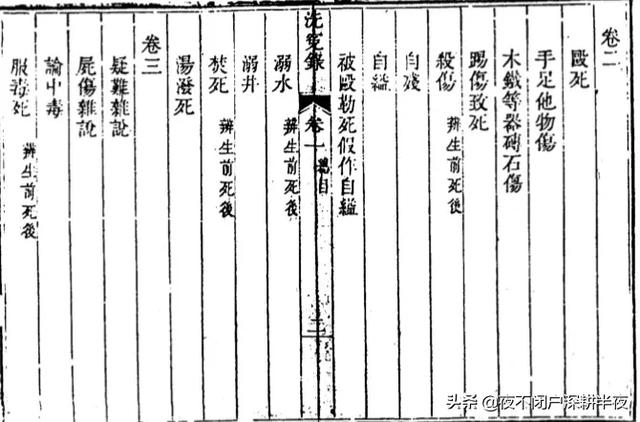 卷二
毆死
手足他物傷
木鐵等器磚石傷
踢傷致死
殺傷 辨生前死後
自殘
自縊
被毆勒死假作自縊
洗冤錄 卷一 總目 二
溺水 辨生前死後
溺井
焚死 辨生前死後
湯潑死
卷三
疑難雜說
屍傷雜說
論中毒
服毒死 辨生前死後
头条 @夜不闭户深耕半夜